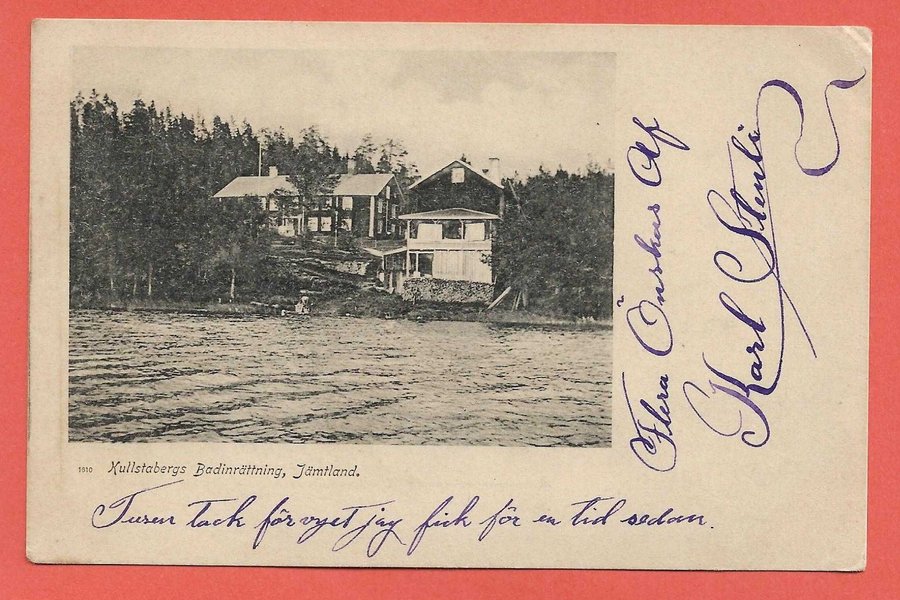 1610 Kullstabergs Badinrättning, Jämtland.
Tusen tack för vyet jag fick för en tid sedan.
Flera Önskas Af
Karl